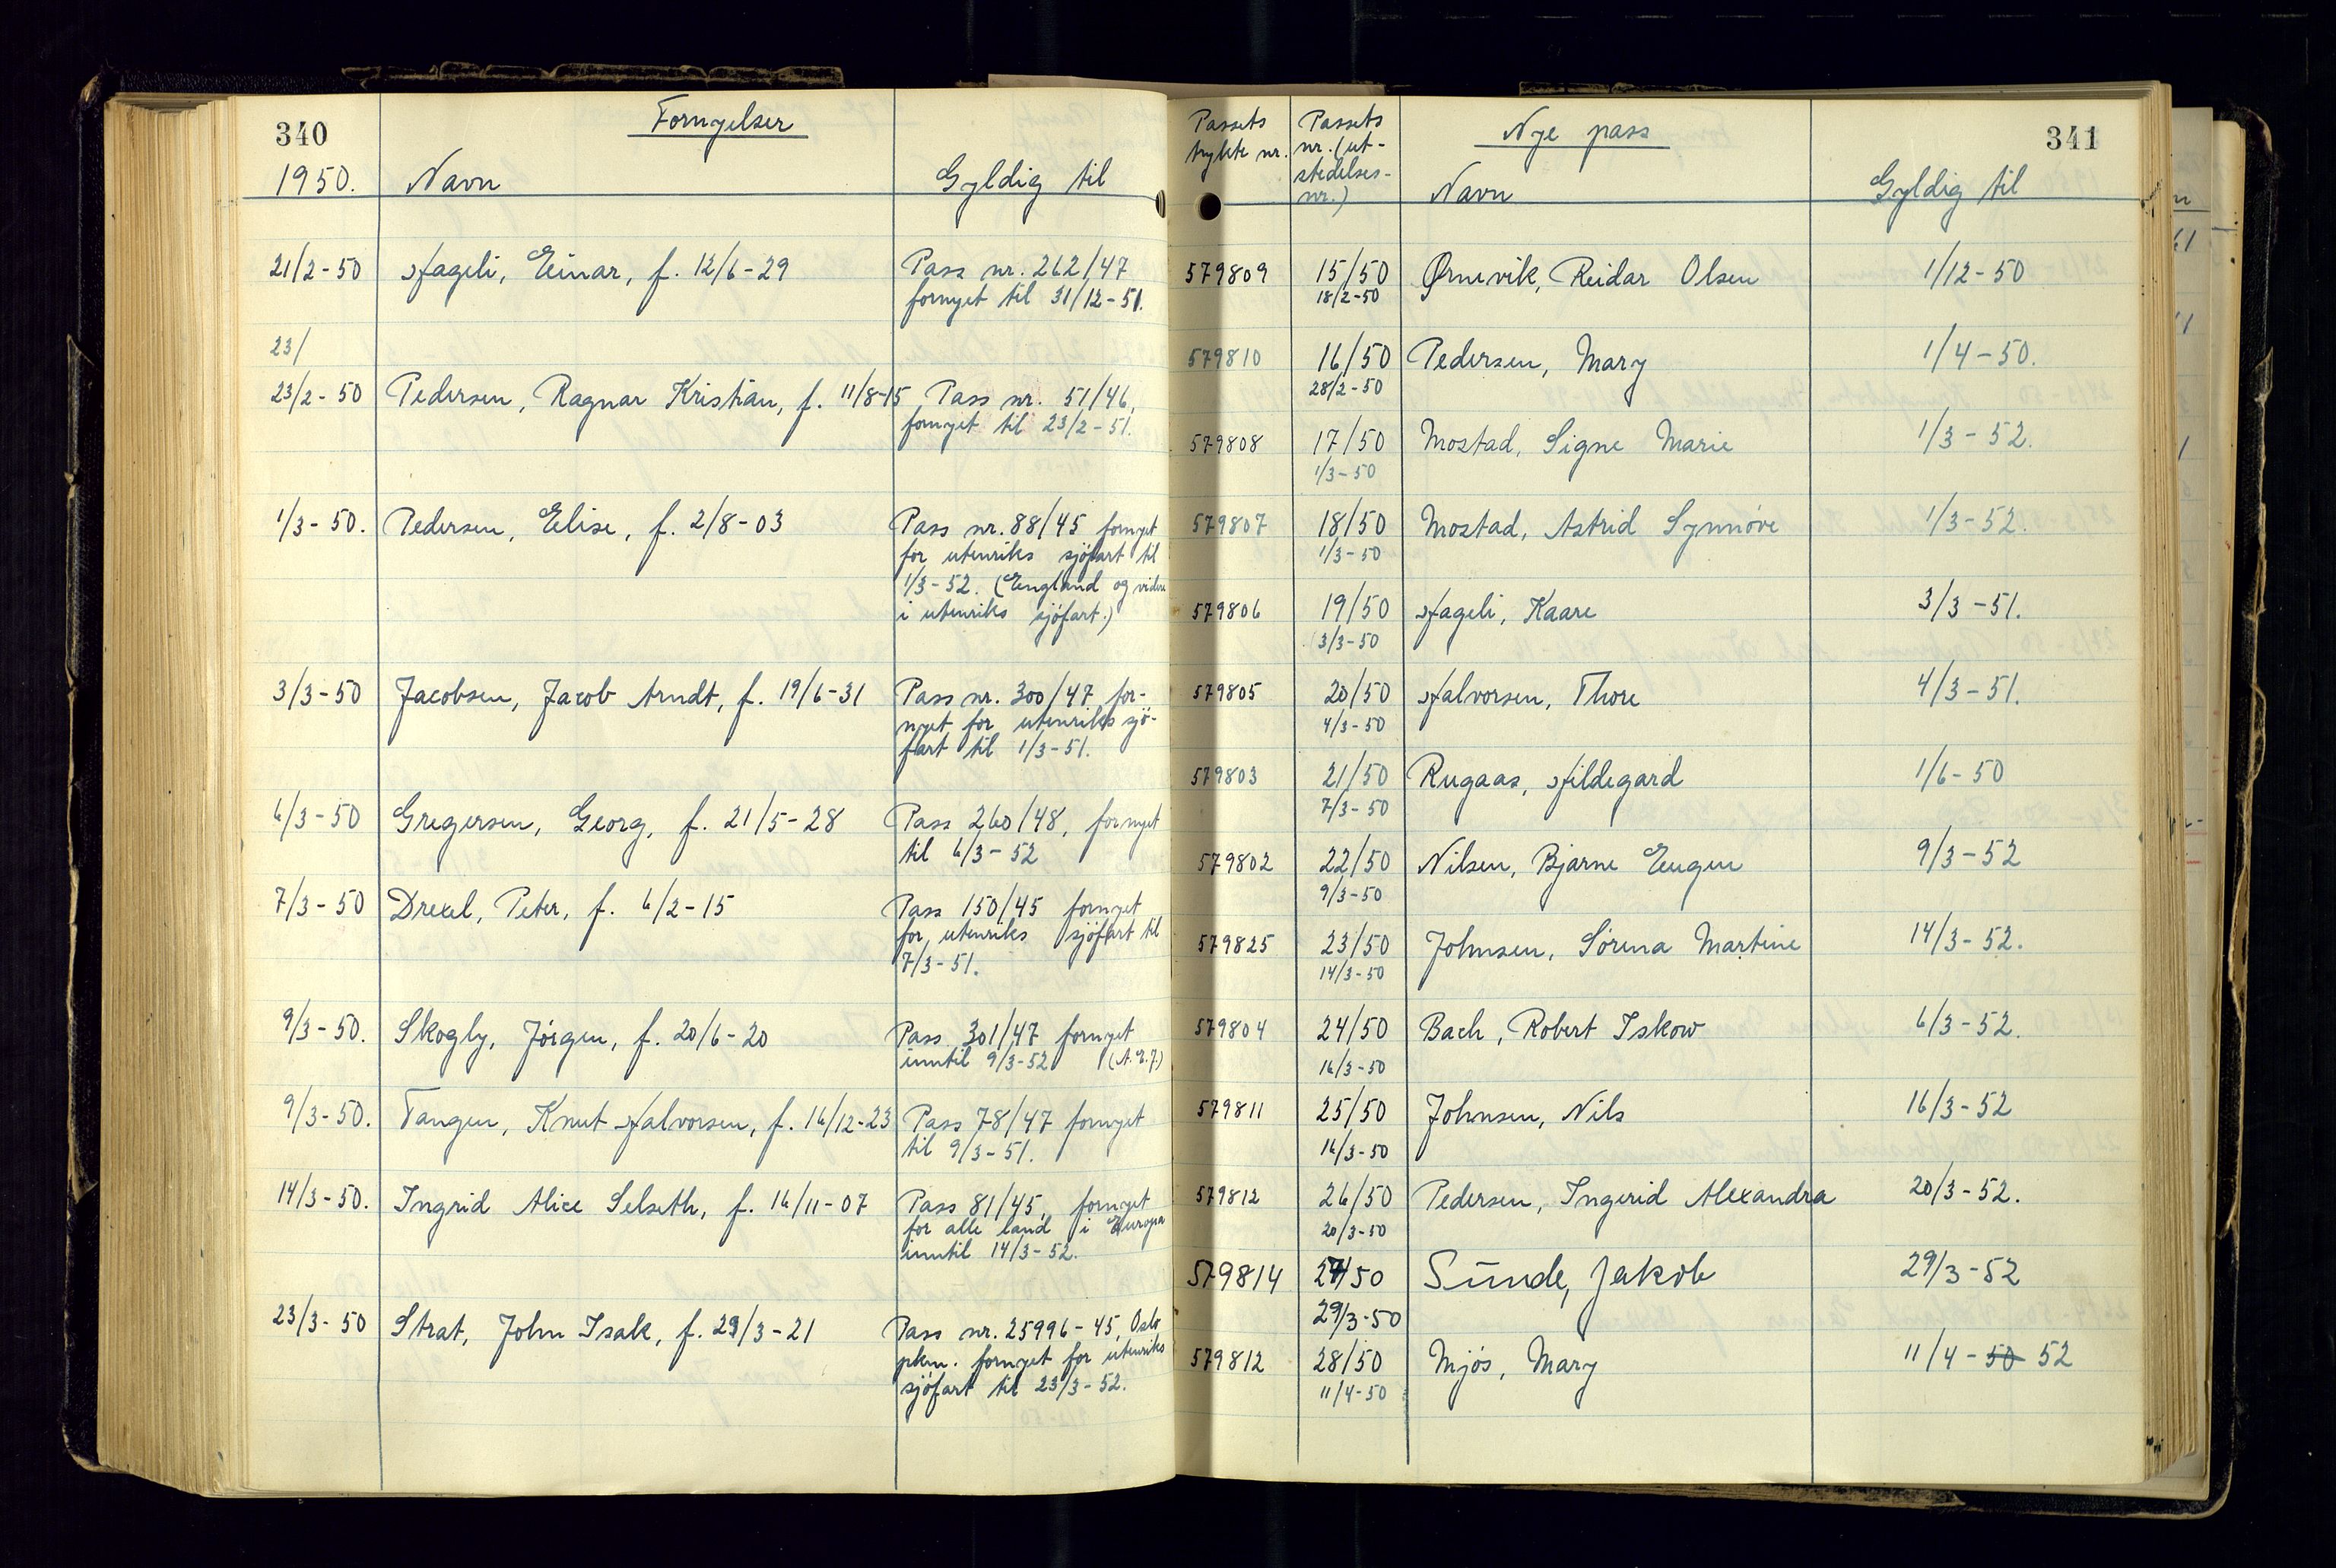 340
Fornyelser
1950. Navn Gyldig til
21/2-50 Hageli, Einar, f. 12/6-29 Pass nr. 262/47
fornyet til 31/12-51.
23/
23/2-50 Pedersen, Ragnar Kristian, f. 11/8-15 Pass nr. 51/46,
fornyet til 23/2-51.
1/3-50. Pedersen, Elise, f. 2/8-03 Pass nr. 88/45 fornyet
for utenriks sjöfart til
1/3-52. (England og videre
i utenriks sjöfart.)
3/3-50 Jacobsen, Jacob Arndt, f. 19/6-31 Pass nr. 300/47 for-
nyet for utenriks sjö-
fart til 1/3-51.
6/3-50 Gregersen, Georg, f. 21/5-28 Pass 260/48, fornyet
til 6/3-52
7/3-50 Drexel, Peter, f. 6/2-15 Pass 150/45 fornyet
for utenriks sjöfart til
7/3-51.
9/3-50. Skogly, Jörgen, f. 20/6-20 Pass 301/47 fornyet
inntil 9/3-52
9/3-50. Tangen, Knut Halvorsen, f. 16/12-23 Pass 78/47 fornyet
til 9/3-51.
14/3-50. Ingrid Alice Selseth, f. 16/11-07 Pass 81/45, fornyet
for alle land i Europa
inntil 14/3-52.
23/3-50 Strat, John Isak, f. 29/3-21 Pass nr. 25996-45, Oslo
pkm. fornyet for utenriks
sjöfart til 23/3-52.
341
Passets trykte nr. Passets nr. (ut-stedelses-nr.) Nye pass
Navn Gyldig til
579809 15/50 Ørnevik, Reidar Olsen 1/12-50
18/2-50
579810 16/50 Pedersen, Mary 1/4-50.
28/2-50
579808 17/50 Mostad, Signe Marie 1/3-52.
1/3-50
579807 18/50 Mostad, Astrid Synnöve 1/3-52.
1/3-50
579806 19/50 Hageli, Kaare 3/3-51.
3/3-50
579805 20/50 Halvorsen, Thore 4/3-51.
4/3-50
579803 21/50 Rugaas, Hildegard 1/6-50
7/3-50
579802 22/50 Nilsen, Bjarne Eugen 9/3-52
9/3-50
579825 23/50 Johnsen, Sörina Martine 14/3-52.
14/3-50
579804 24/50 Bach, Robert Iskow 6/3-52.
16/3-50
579811 25/50 Johnsen, Nils 16/3-52
16/3-50
579812 26/50 Pedersen, Ingerid Alexandra 20/3-52.
20/3-50
579814 27/50 Sunde, Jakob 29/3-52
29/3-50
579812 28/50 Mjös, Mary 11/4-50 52
11/4-50